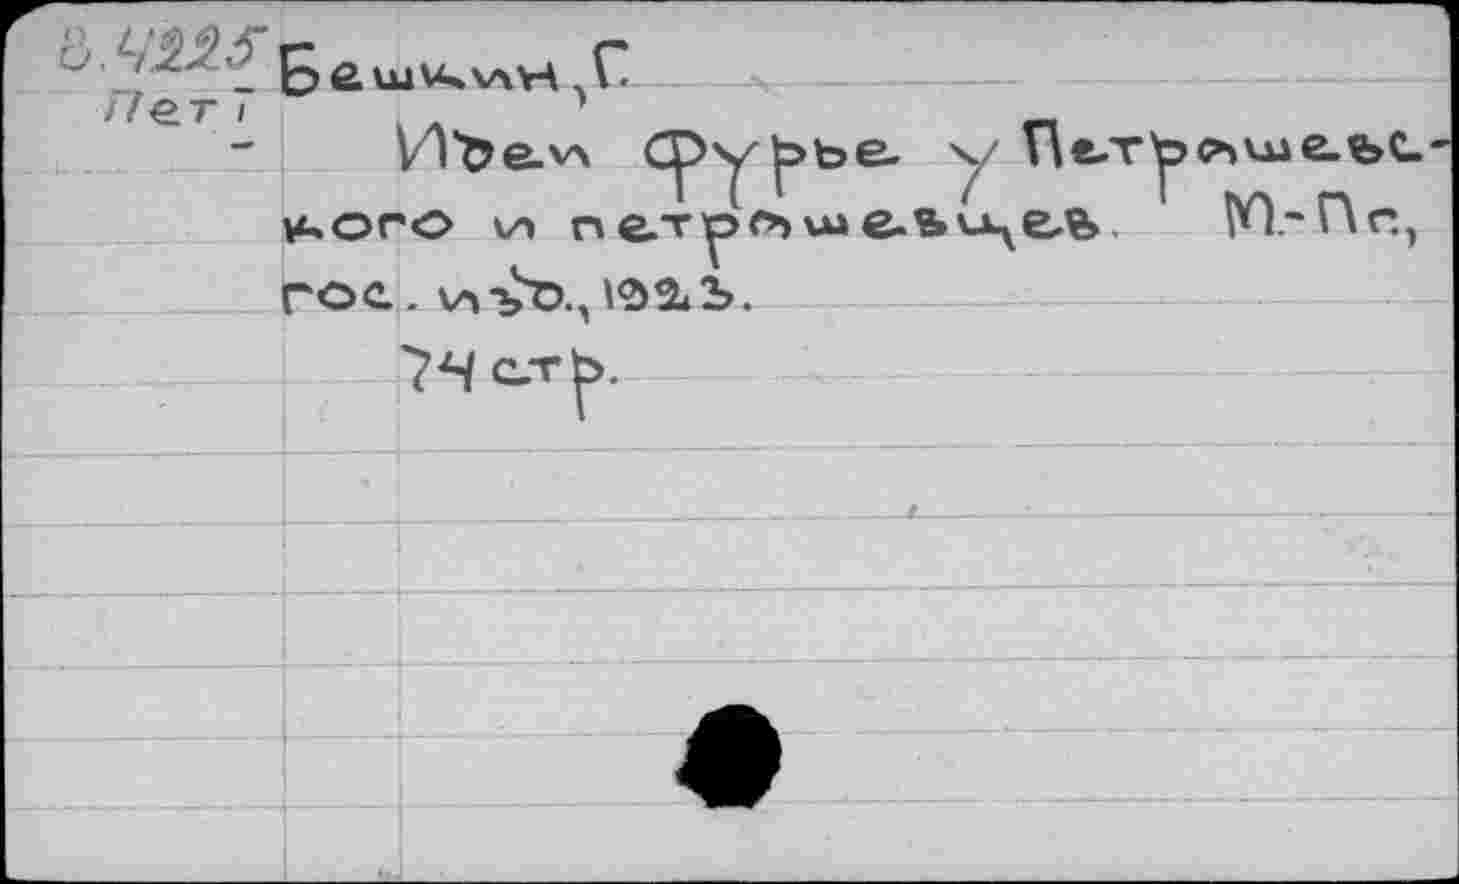 8.4225
Пет 1
Бешкин, Г.
Идеи фурье у Петрашевс-
кого и петрашевцев. М.-Пг.,
гос. изд., 1923.
74 стр.